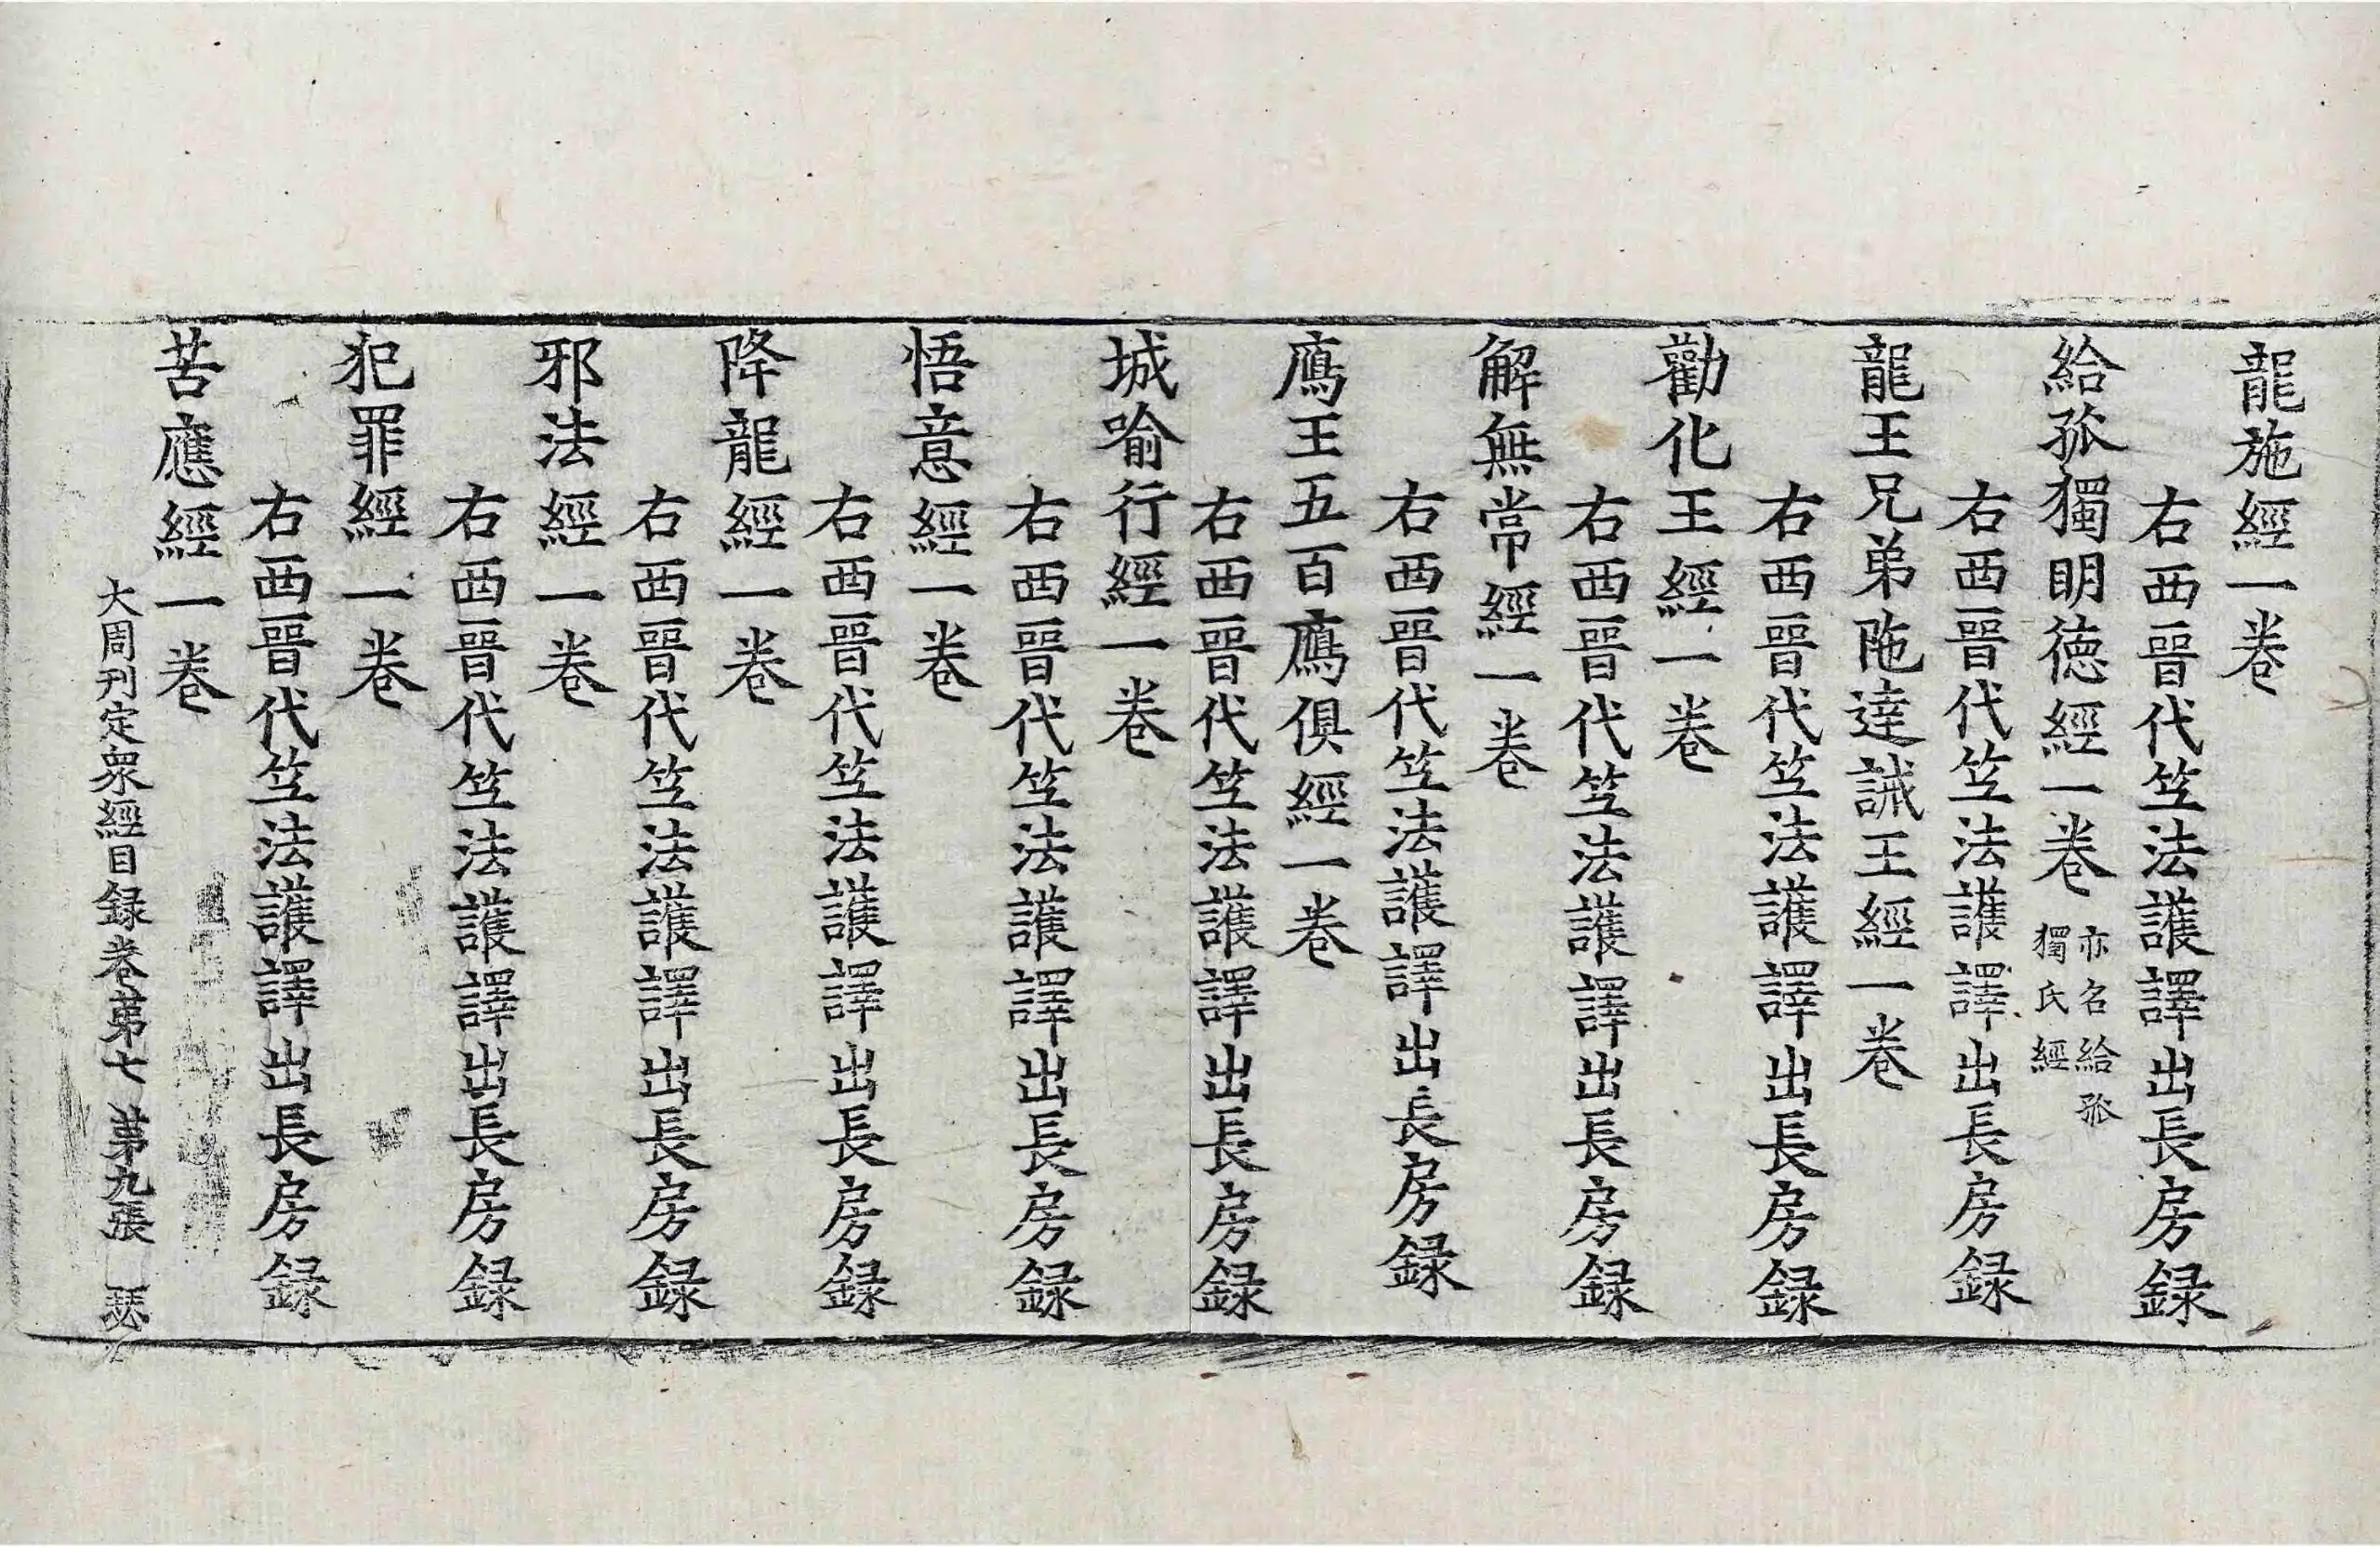 龍施經一卷
右西晉代笁法護譯出長房録
給孤獨明徳經一卷 亦名給孤獨氏經
右西晉代笁法護譯出長房録
龍王兄弟陁達誡王經一卷
右西晉代笁法護譯出長房録
勸化王經一卷
右西晉代笁法護譯出長房録
解無常經一卷
右西晉代笁法護譯出長房録
鴈王五百鴈俱經一卷
右西晉代笁法護譯出長房録
城喻行經一卷
右西晉代笁法護譯出長房録
悟意經一卷
右西晉代笁法護譯出長房録
降龍經一卷
右西晉代笁法護譯出長房録
邪法經一卷
右西晉代笁法護譯出長房録
犯罪經一卷
右西晉代笁法護譯出長房録
苦應經一卷
大周刊定衆經目録卷苐七 苐九張